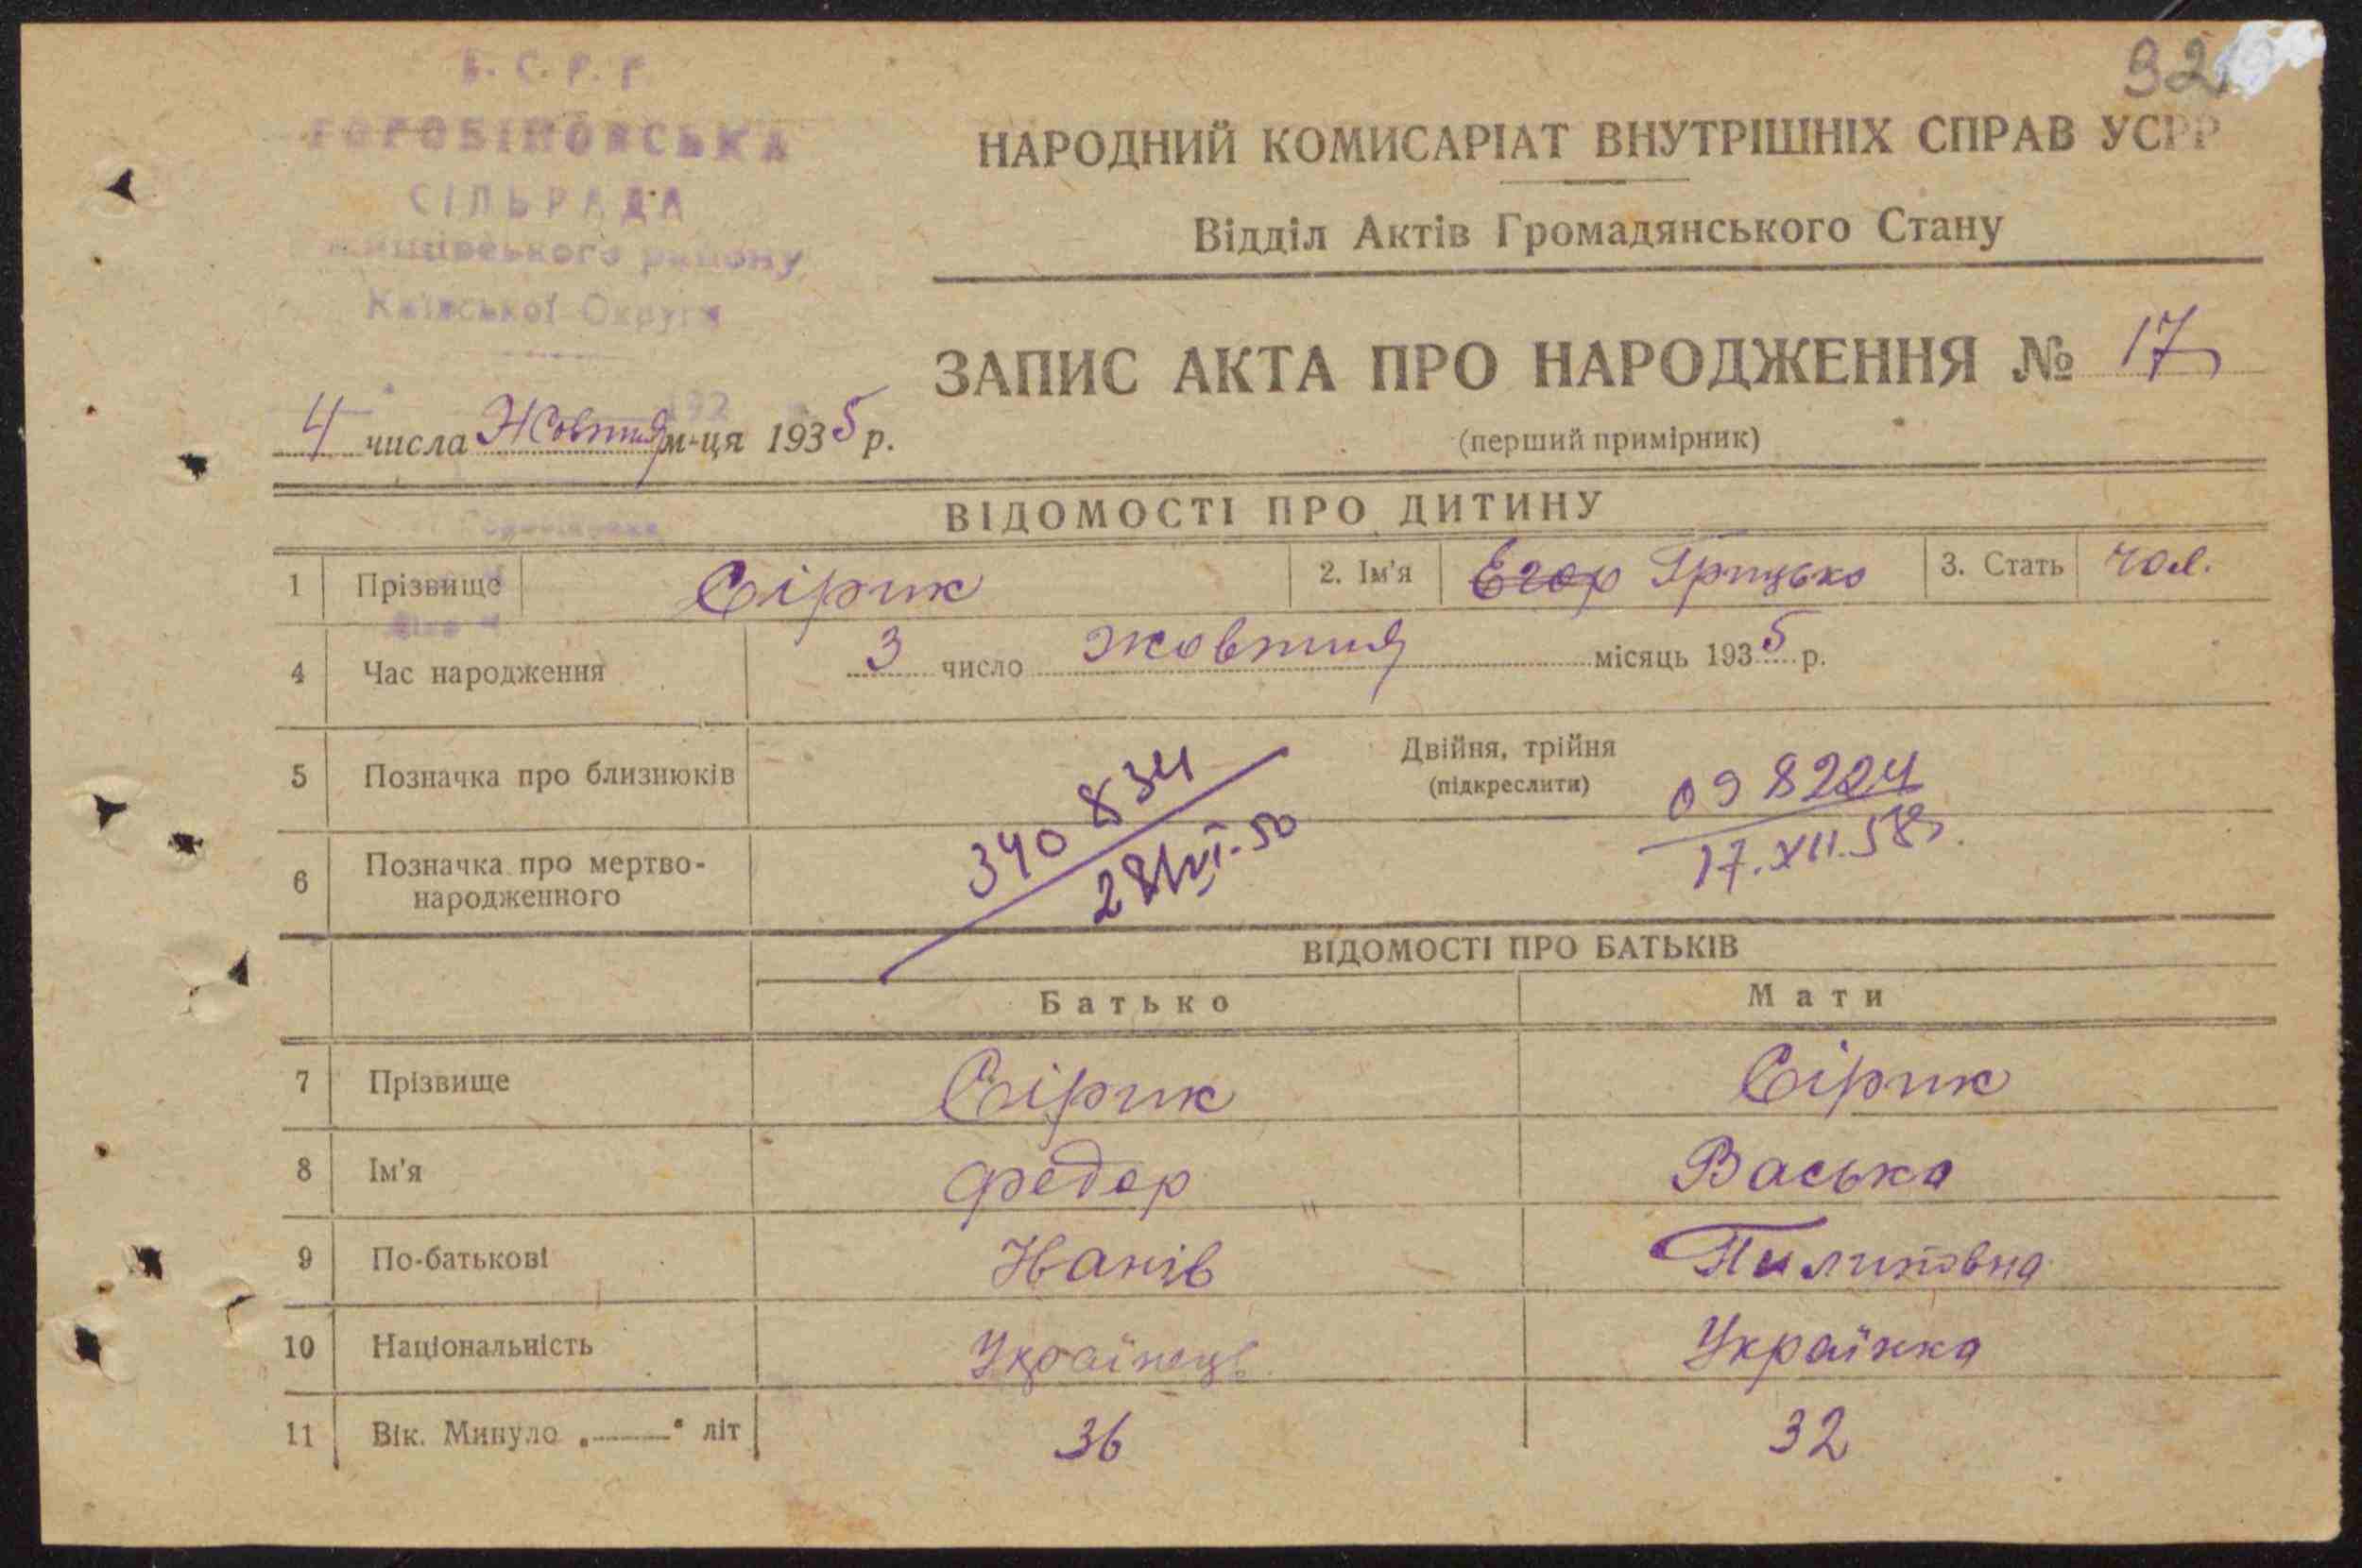 32
СІЛЬРАДА
району
Київської Округи
НАРОДНИЙ КОМИСАРІАТ ВНУТРІШНІХ СПРАВ УСРР
Відділ Актів Громадянського Стану
ЗАПИС АКТА ПРО НАРОДЖЕННЯ № 17
4 числа Жовтня м-ця 1935 р.
(перший примірник)
ВІДОМОСТІ ПРО ДИТИНУ
1 Прізвище Сірик 2. Ім'я Егор Грицько 3. Стать чол.
4 Час народження 3 число жовтня місяць 1935 р.
5 Позначка про близнюків Двійня, трійня
(підкреслити)
340834
28/VI-50
098224
17.XII.58р.
6 Позначка про мертво-
народженного
ВІДОМОСТІ ПРО БАТЬКІВ
Батько Мати
7 Прізвище Сірик Сірик
8 Ім'я Федор Васька
9 По-батькові Іванів Пилиповна
10 Національність Українець Українка
11 Вік. Минуло „——“ літ 36 32